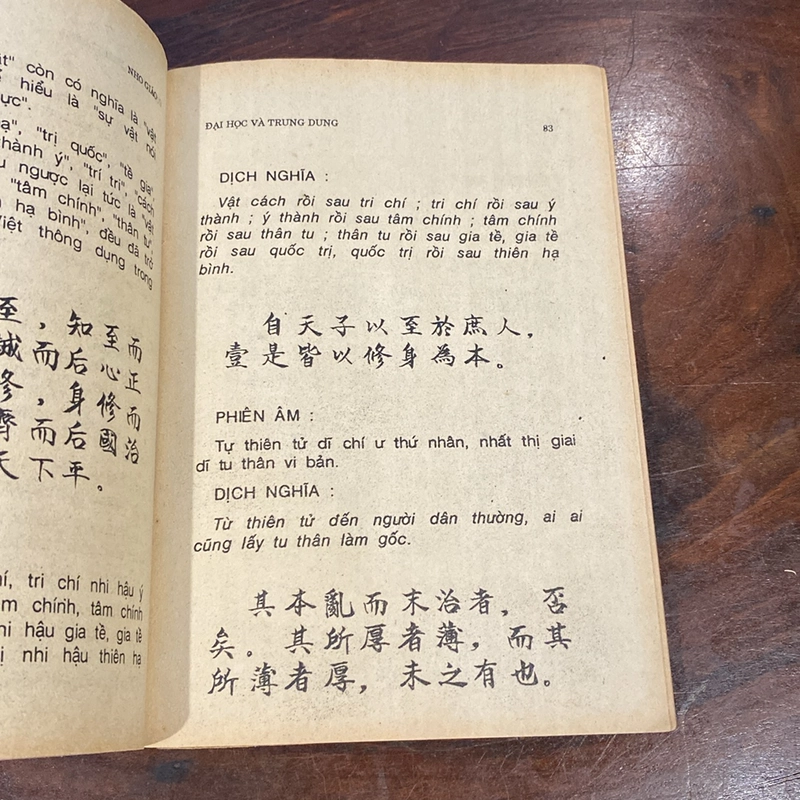 NHO GIÁO
ật" còn có nghĩa là "vật
ể hiểu là "sự vật nói
ực".
ạ", "trị quốc", "tề gia",
thành ý", "trí tri", "cách
u ngược lại tức là "vật
"tâm chính", "thân tu"
n hạ bình", đều đã trở
Việt thông dụng trong
至，知至而
誠，而后心正
修，身修而
齊，而后國治
天下平。
í, tri chí nhi hậu ý
m chính, tâm chính
hi hậu gia tề, gia tề
ị nhi hậu thiên hạ
ĐẠI HỌC VÀ TRUNG DUNG 83
DỊCH NGHĨA :
Vật cách rồi sau tri chí ; tri chí rồi sau ý
thành ; ý thành rồi sau tâm chính ; tâm chính
rồi sau thân tu ; thân tu rồi sau gia tề, gia tề
rồi sau quốc trị, quốc trị rồi sau thiên hạ
bình.
自天子以至於庶人，
壹是皆以修身為本。
PHIÊN ÂM :
Tự thiên tử dĩ chí ư thứ nhân, nhất thị giai
dĩ tu thân vi bản.
DỊCH NGHĨA :
Từ thiên tử đến người dân thường, ai ai
cũng lấy tu thân làm gốc.
其本亂而末治者，否
矣。其所厚者薄，而其
所薄者厚，未之有也。